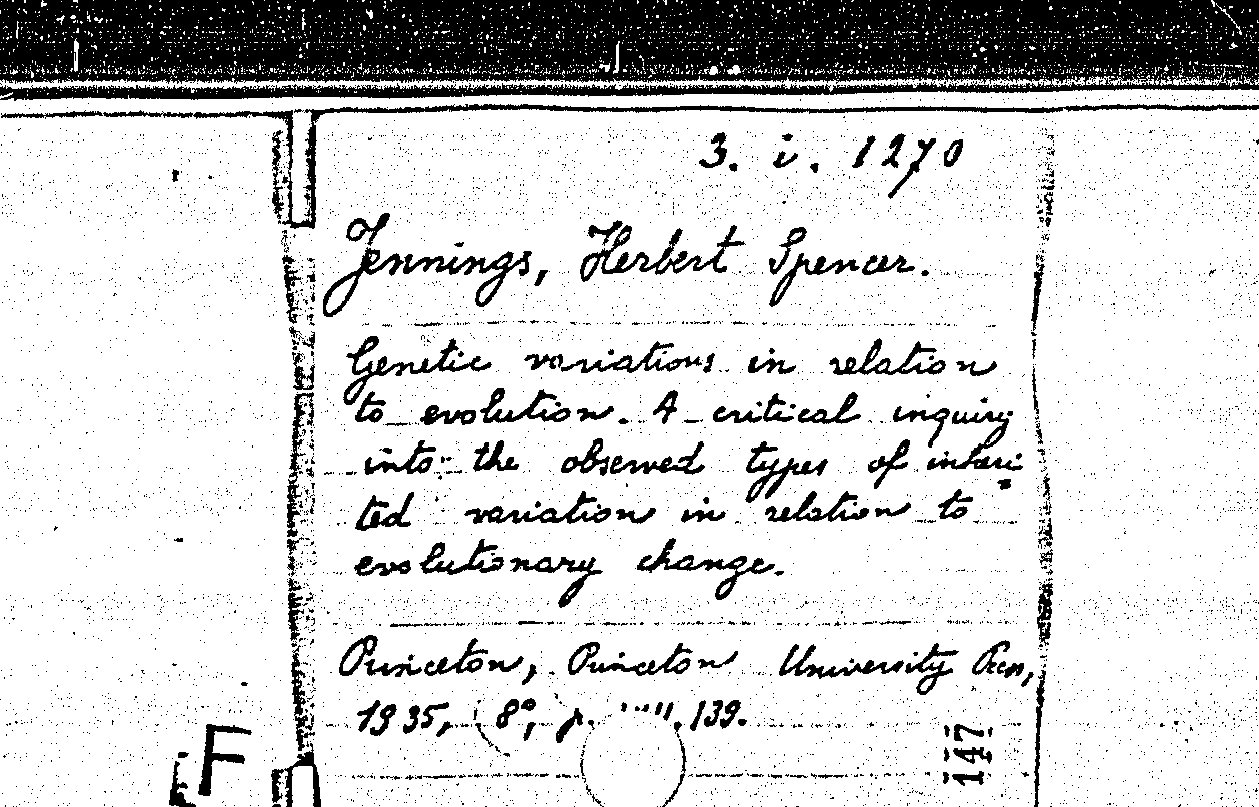 3. i. 1270
Jennings, Herbert Spencer.
Genetic variations in relation
to evolution. A critical inquiry
into the observed types of inheri=
ted variation in relation to
evolutionary change.
Princeton, Princeton University Press,
1935, 8°, p. 139.
147
F